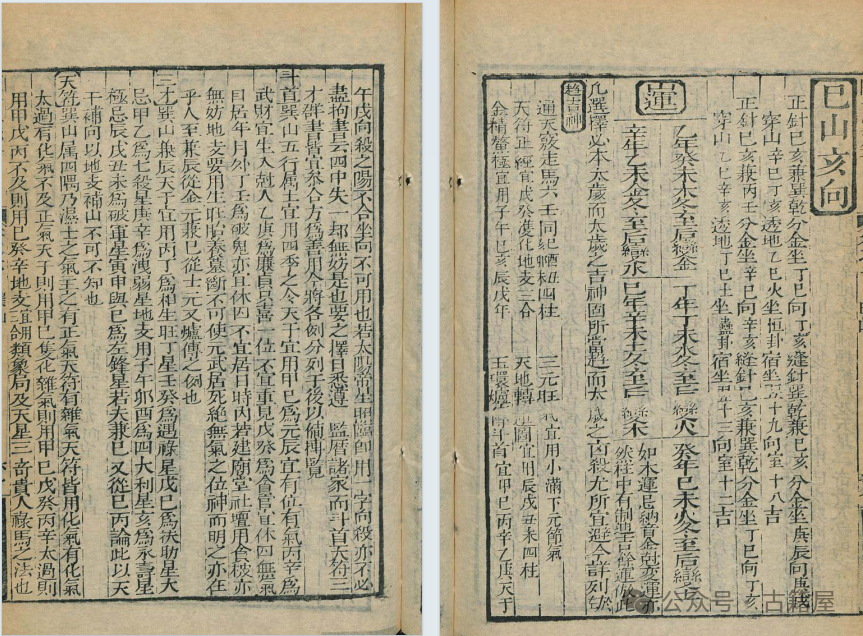 巳山亥向
正針巳亥兼巽乾分金坐丁巳向丁亥縫針巽乾兼巳亥分金坐庚辰向庚戌
穿山辛巳丁亥透地乙巳火坐恒卦宿坐五十九向室十八吉
正針巳亥兼丙壬分金坐辛巳向辛亥縫針巳亥兼巽乾分金坐丁巳向丁亥
穿山乙巳辛亥透地丁巳土坐蠱卦宿坐十三向室十二吉
山運
乙年癸未木冬至后變金
丁年丁未水冬至后變火
癸年巳未火冬至后變土
辛年乙未金冬至后變水
巳年辛未土冬至后變木
如木運忌納音金尅變運亦
然柱中有制
凡選擇必本太歲而太歲之吉神固所當趨而太歲之凶殺尤所宜避今詳列
趨吉神
通天竅走馬六壬同
三元旺氣宜用小滿下元節氣
天符正經宜戊癸變化地支三合
天地轉運圖宜用辰戌丑未四柱
金精鰲極宜用子午巳亥戊年
斗首宜甲巳丙辛乙庚天干
午戌向殺之陽不合坐向不可用也若太陽帝星照臨即用一字向殺亦不必
盡拘書云四中失一却無妨是也要之擇日悉遵監曆諸家而斗首天符三
才群書皆宜叅合方為善用今將各例分列于後以備揀覽
斗首巽山五行属土宜用四季之令天干宜用甲巳為元辰宜有位有氣丙辛為
武財宜生入尅入乙庚為廉貞只喜一位不宜重見戊癸為貪官宜休囚無氣
日居年月外丁壬為破鬼亦宜休囚不宜居日時内若建廟堂社壇用貪破亦
無妨地支要用生旺臨官養墓斷不可使元武居死絕無氣之位神而明之亦在
乎人至兼辰從金元兼巳從士元又爐傳之例也
三才巽山兼辰天干宜用丙丁為相生旺丁星壬癸為遇祿星戊巳為扶助星大
忌甲乙為七殺星庚辛為洩弱星地支用子午卯酉為四大利星亥為永壽星
極忌辰戌丑未為破軍星寅申與巳為左鋒星若夫兼巳又從巳丙論此以天
干補向以地支補山不可不知也
天符巽山属四隅乃濕土之氣主之有正氣天符有雜氣天符皆用化氣有化氣
太過有化氣不及正氣天干則用甲巳隻化雜氣則用甲巳戊癸丙辛太過則
用甲戊丙不及則用巳癸辛地支宜合類象局及天星三奇貴人祿馬之法也
公众号 古籍屋